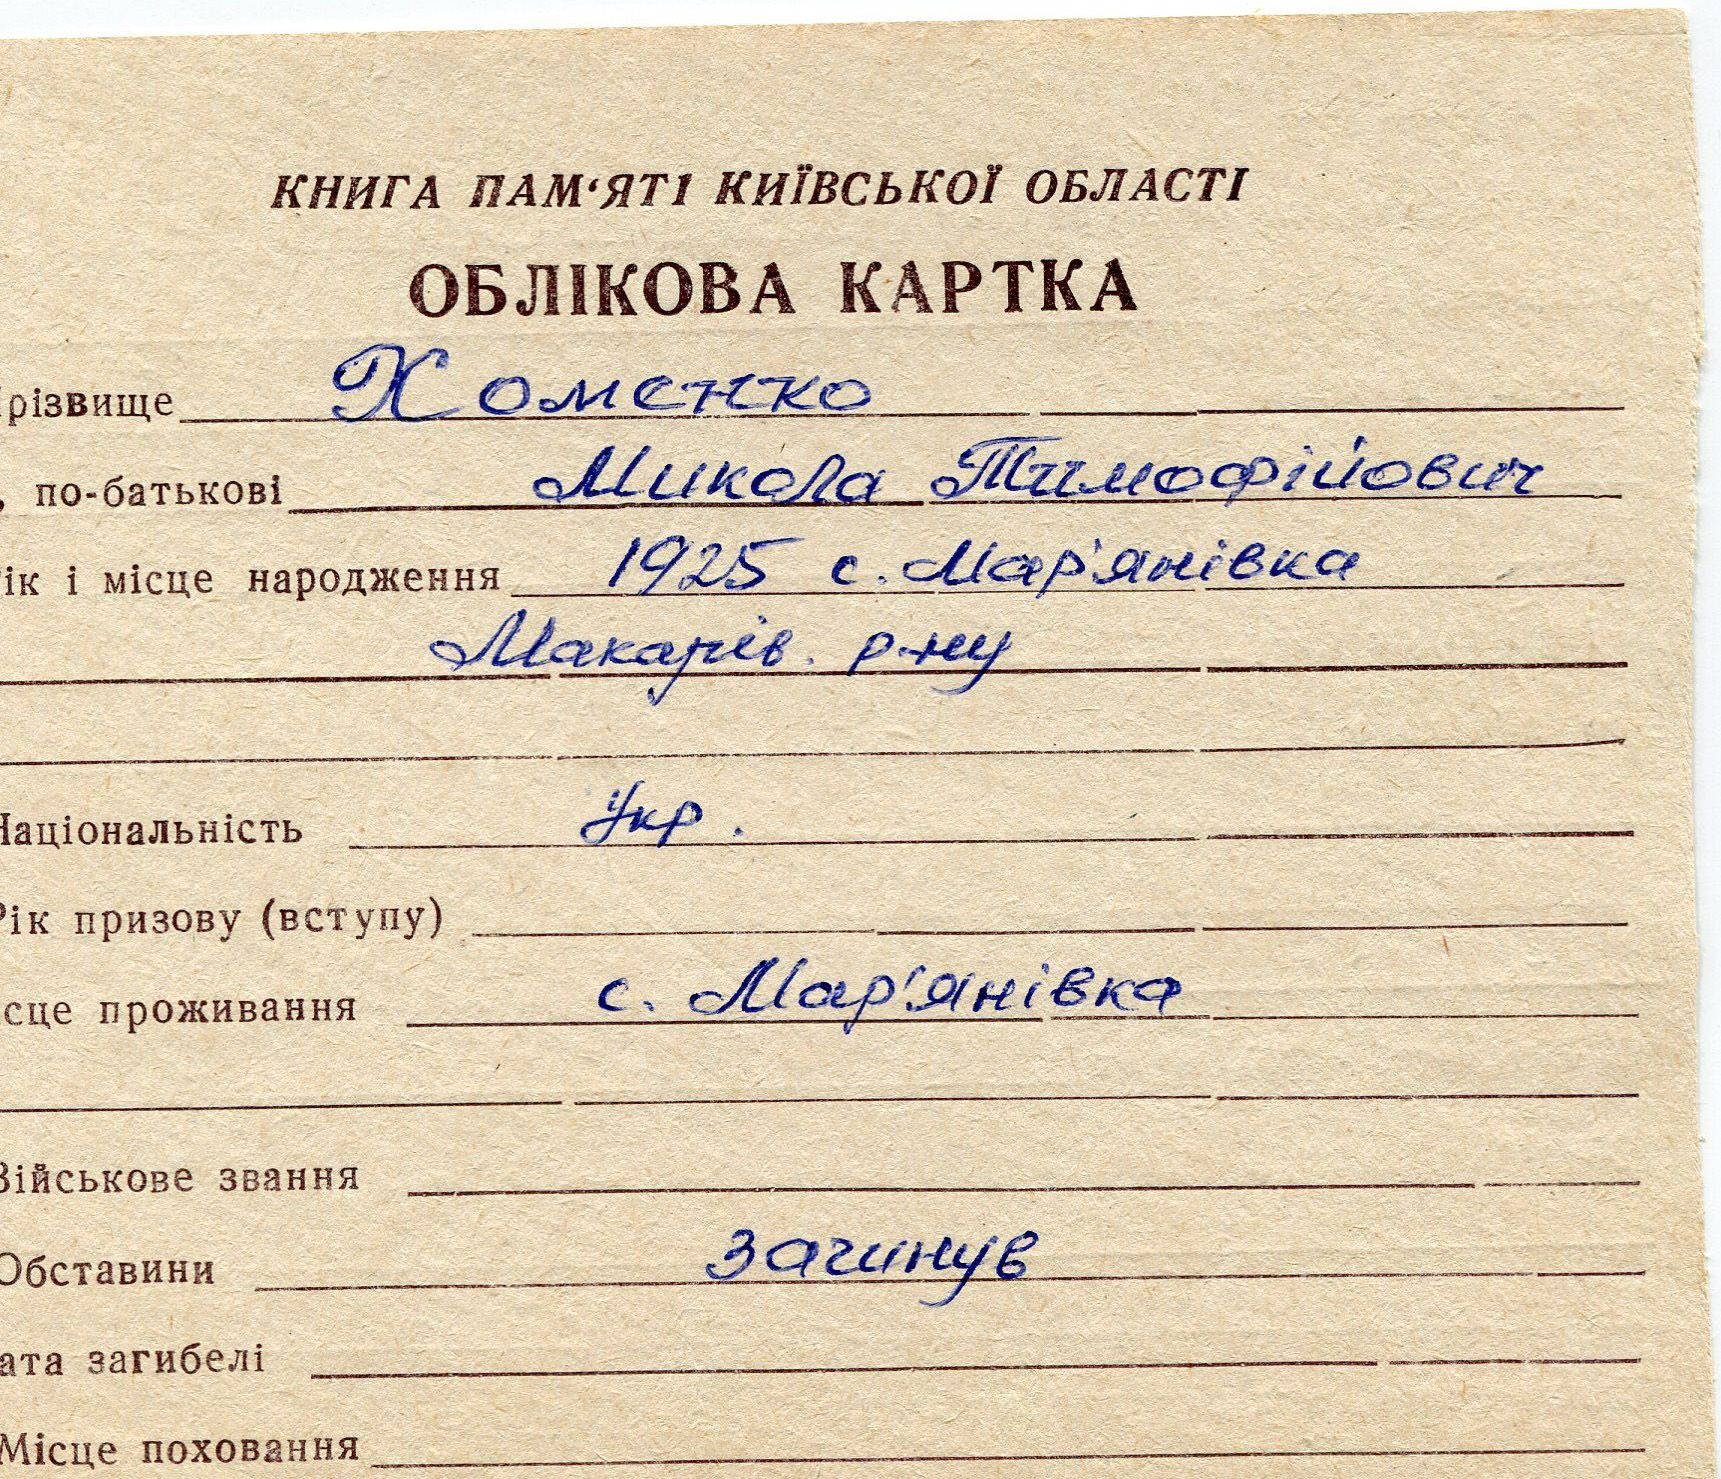 КНИГА ПАМ‘ЯТІ КИЇВСЬКОЇ ОБЛАСТІ
ОБЛІКОВА КАРТКА
різвище Хоменко
, по-батькові Микола Тимофійович
ік і місце народження 1925 с. Мар'янівка
Макарів. р-ну
Національність Укр.
Рік призову (вступу)
сце проживання с. Мар'янівка
Військове звання
Обставини Загинув
ата загибелі
Місце поховання